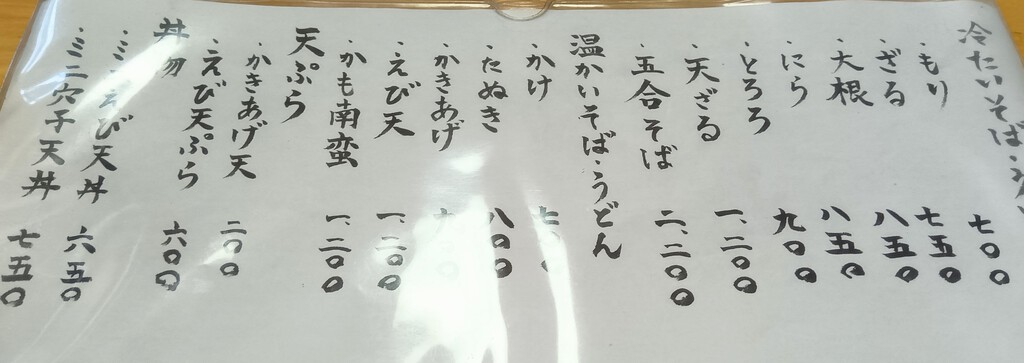 冷たいそば・う
・もり 七〇〇
・ざる 七五〇
・大根 八五〇
・にら 八五〇
・とろろ 九〇〇
・天ざる 一、二〇〇
・五合そば 二、二〇〇
温かいそば・うどん
・かけ 七
・たぬき 八〇〇
・かきあげ
・えび天 一、二〇〇
・かも南蛮 一、二〇〇
天ぷら
・かきあげ天 二〇〇
・えび天ぷら 六〇〇
丼物
・ミニえび天丼 六五〇
・ミニ穴子天丼 七五〇